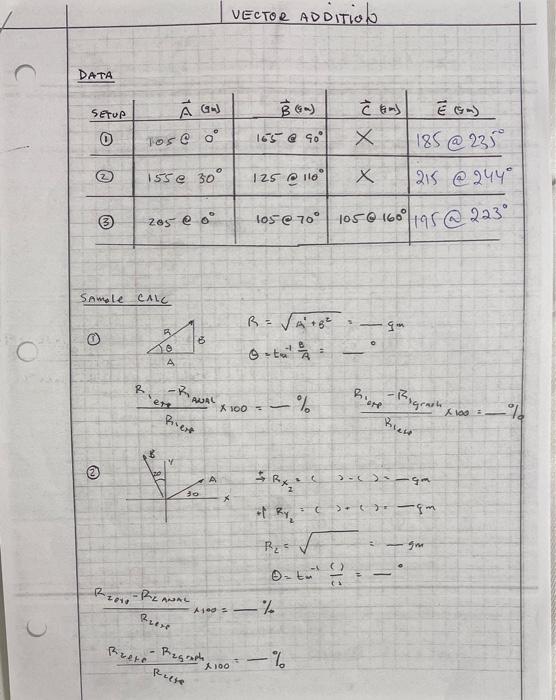 VECTOR ADDITION
DATA
SETUP A⃗ (gm) B⃗ (gm) C⃗ (gm) E⃗ (gm)
① 105 @ 0° 165 @ 90° X 185 @ 235°
② 155 @ 30° 125 @ 110° X 215 @ 244°
③ 205 @ 0° 105 @ 70° 105 @ 160° 195 @ 223°
SAMPLE CALC
① R θ A B R = √A²+B² = — gm
θ = tan⁻¹ B/A = — °
(R₁exp - R₁ANAL)/R₁exp × 100 = — % (R₁exp - R₁graph)/R₁exp × 100 = — %
② B Y 20 A 30 X →+ Rx₂ = ( ) - ( ) = — gm
+↑ Ry₂ = ( ) + ( ) = — gm
R₂ = √ = — gm
θ = tan⁻¹ ( )/( ) = — °
(R₂exp - R₂ANAL)/R₂exp × 100 = — %
(R₂exp - R₂graph)/R₂exp × 100 = — %